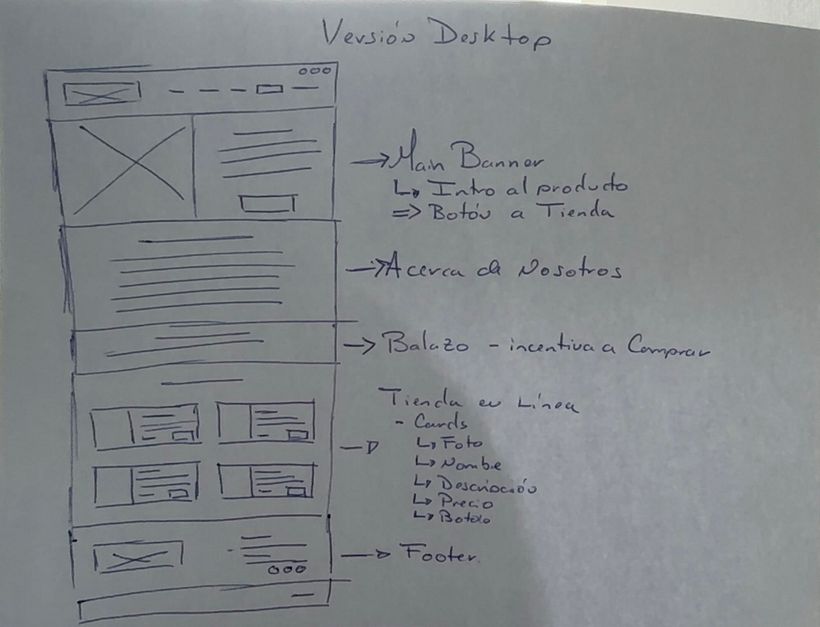 Versión Desktop
→ Main Banner
↳ Intro al producto
⇒ Botón a Tienda
→ Acerca de Nosotros
→ Balazo - incentiva a Comprar
Tienda en Línea
- Cards
↳ Foto
↳ Nombre
↳ Descripción
↳ Precio
↳ Botón
→ Footer